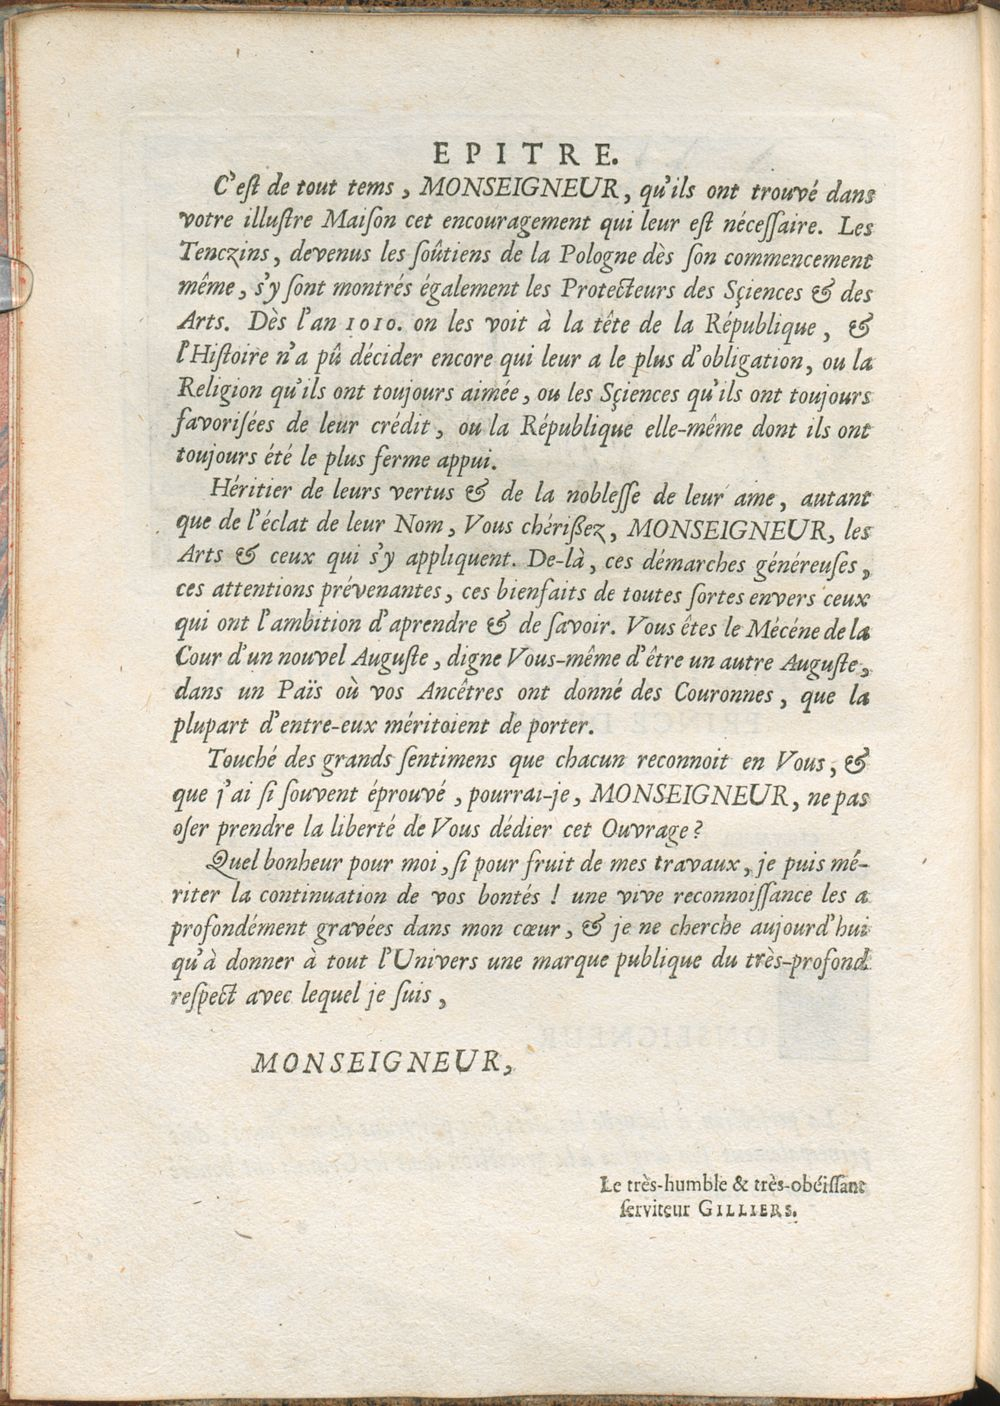 EPITRE.
C'eſt de tout tems, MONSEIGNEUR, qu'ils ont trouvé dans
votre illuſtre Maiſon cet encouragement qui leur eſt néceſſaire. Les
Tenczins, devenus les ſoûtiens de la Pologne dès ſon commencement
même, s'y ſont montrés également les Protecteurs des Sçiences & des
Arts. Dès l'an 1010. on les voit à la tête de la République, &
l'Hiſtoire n'a pû décider encore qui leur a le plus d'obligation, ou la
Religion qu'ils ont toujours aimée, ou les Sçiences qu'ils ont toujours
favoriſées de leur crédit, ou la République elle-même dont ils ont
toujours été le plus ferme appui.
Héritier de leurs vertus & de la nobleſſe de leur ame, autant
que de l'éclat de leur Nom, Vous chérißez, MONSEIGNEUR, les
Arts & ceux qui s'y appliquent. De-là, ces démarches généreuſes,
ces attentions prévenantes, ces bienfaits de toutes ſortes envers ceux
qui ont l'ambition d'aprendre & de ſavoir. Vous êtes le Mécéne de la
Cour d'un nouvel Auguſte, digne Vous-même d'être un autre Auguſte,
dans un Païs où vos Ancêtres ont donné des Couronnes, que la
plupart d'entre-eux méritoient de porter.
Touché des grands ſentimens que chacun reconnoit en Vous, &
que j'ai ſi ſouvent éprouvé, pourrai-je, MONSEIGNEUR, ne pas
oſer prendre la liberté de Vous dédier cet Ouvrage?
Quel bonheur pour moi, ſi pour fruit de mes travaux, je puis mé-
riter la continuation de vos bontés! une vive reconnoiſſance les a
profondément gravées dans mon cœur, & je ne cherche aujourd'hui
qu'à donner à tout l'Univers une marque publique du très-profond
reſpect avec lequel je ſuis,
MONSEIGNEUR,
Le très-humble & très-obéiſſant
ſerviteur GILLIERS.